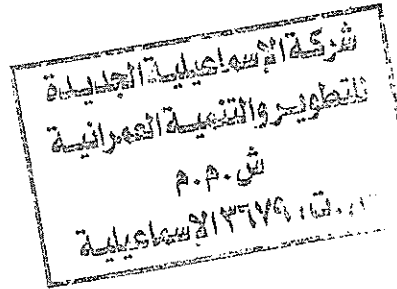 شركة الإسماعيلية الجديدة
للتطوير والتنمية العمرانية
ش.م.م
ت. ٣٦٧٩ الإسماعيلية